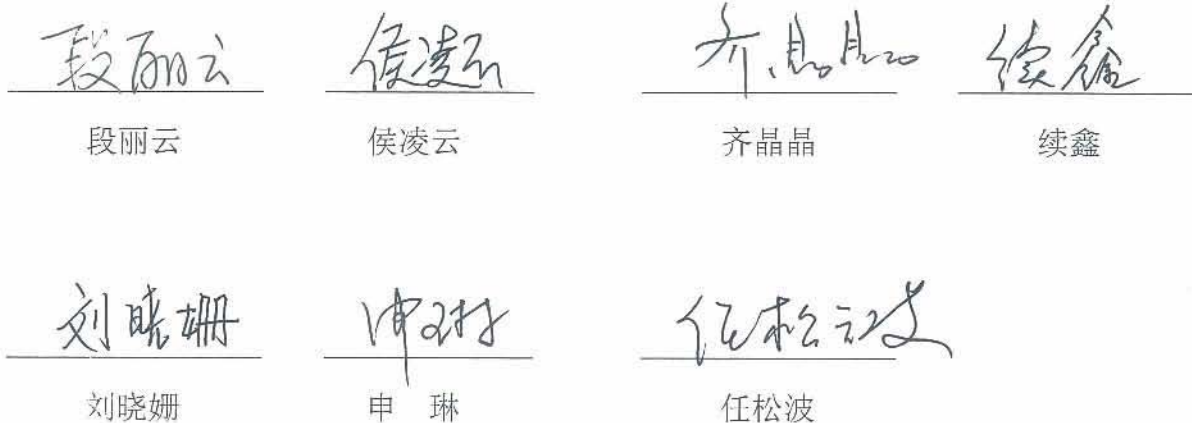 段丽云 侯凌云 齐晶晶 续鑫
段丽云 侯凌云 齐晶晶 续鑫
刘晓姗 申琳 任松波
刘晓姗 申 琳 任松波